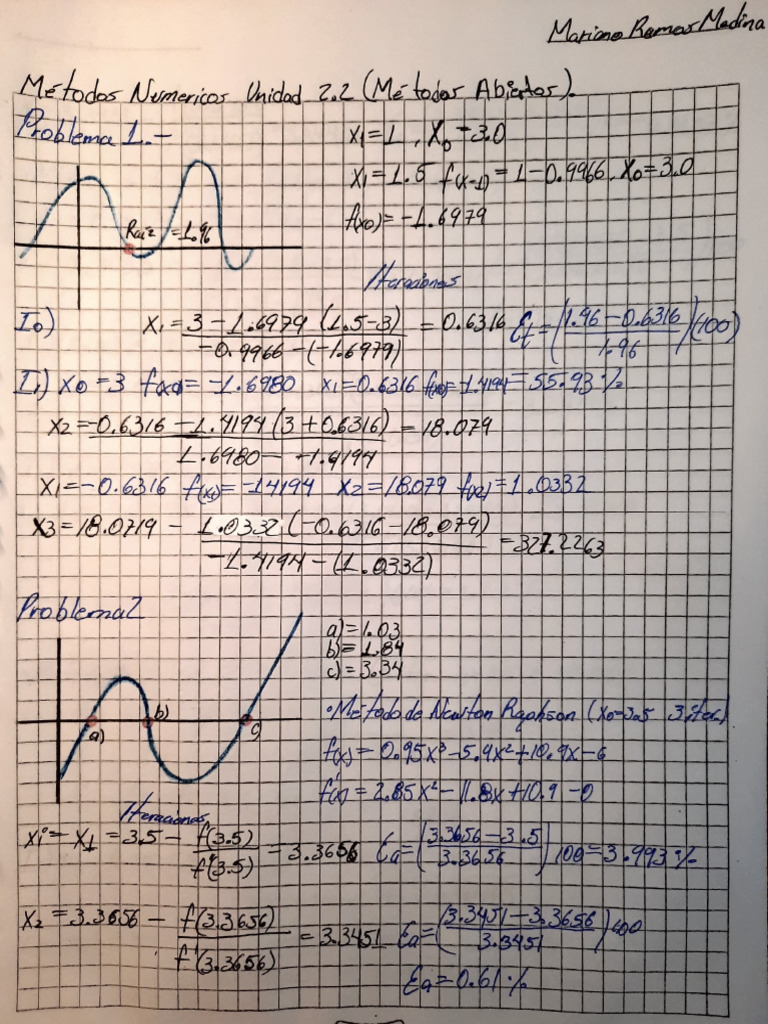 Mariano Ramos Medina
Métodos Numericos Unidad 2.2 (Métodos Abiertos).
Problema 1.-
x1=1, x0=3.0
x1=1.5 f(x-1)=1-0.9966, x0=3.0
f(x0)=-1.6979
Raiz =1.96
Iteraciones
I0) x1=3-1.6979 (1.5-3) / -0.9966-(-1.6979) = 0.6316 Et=(1.96-0.6316 / 1.96)(100)
I1) x0=3 f(x0)=-1.6980 x1=0.6316 f(x0)=-1.4194 =55.93%
x2=-0.6316-1.4194(3+0.6316) / 1.6980--1.4194 =18.079
x1=-0.6316 f(x1)=-14194 x2=18.079 f(x2)=1.0332
x3=18.0719 - 1.0332(-0.6316-18.079) / -1.4194-(1.0332) =327.2263
Problema 2
a)=1.03
b)=1.84
c)=3.34
a) b) c)
•Método de Newton Raphson (x0=3.5 3 iter.)
f(x)=0.95x³-5.9x²+10.9x-6
f'(x)=2.85x²-11.8x+10.9-0
Iteraciones
xi=x1=3.5 - f(3.5) / f'(3.5) =3.3656 Ea=(3.3656-3.5 / 3.3656)100=3.993%
x2=3.3656 - f(3.3656) / f'(3.3656) =3.3451 Ea=(3.3451-3.3656 / 3.3451)100
Ea=0.61%